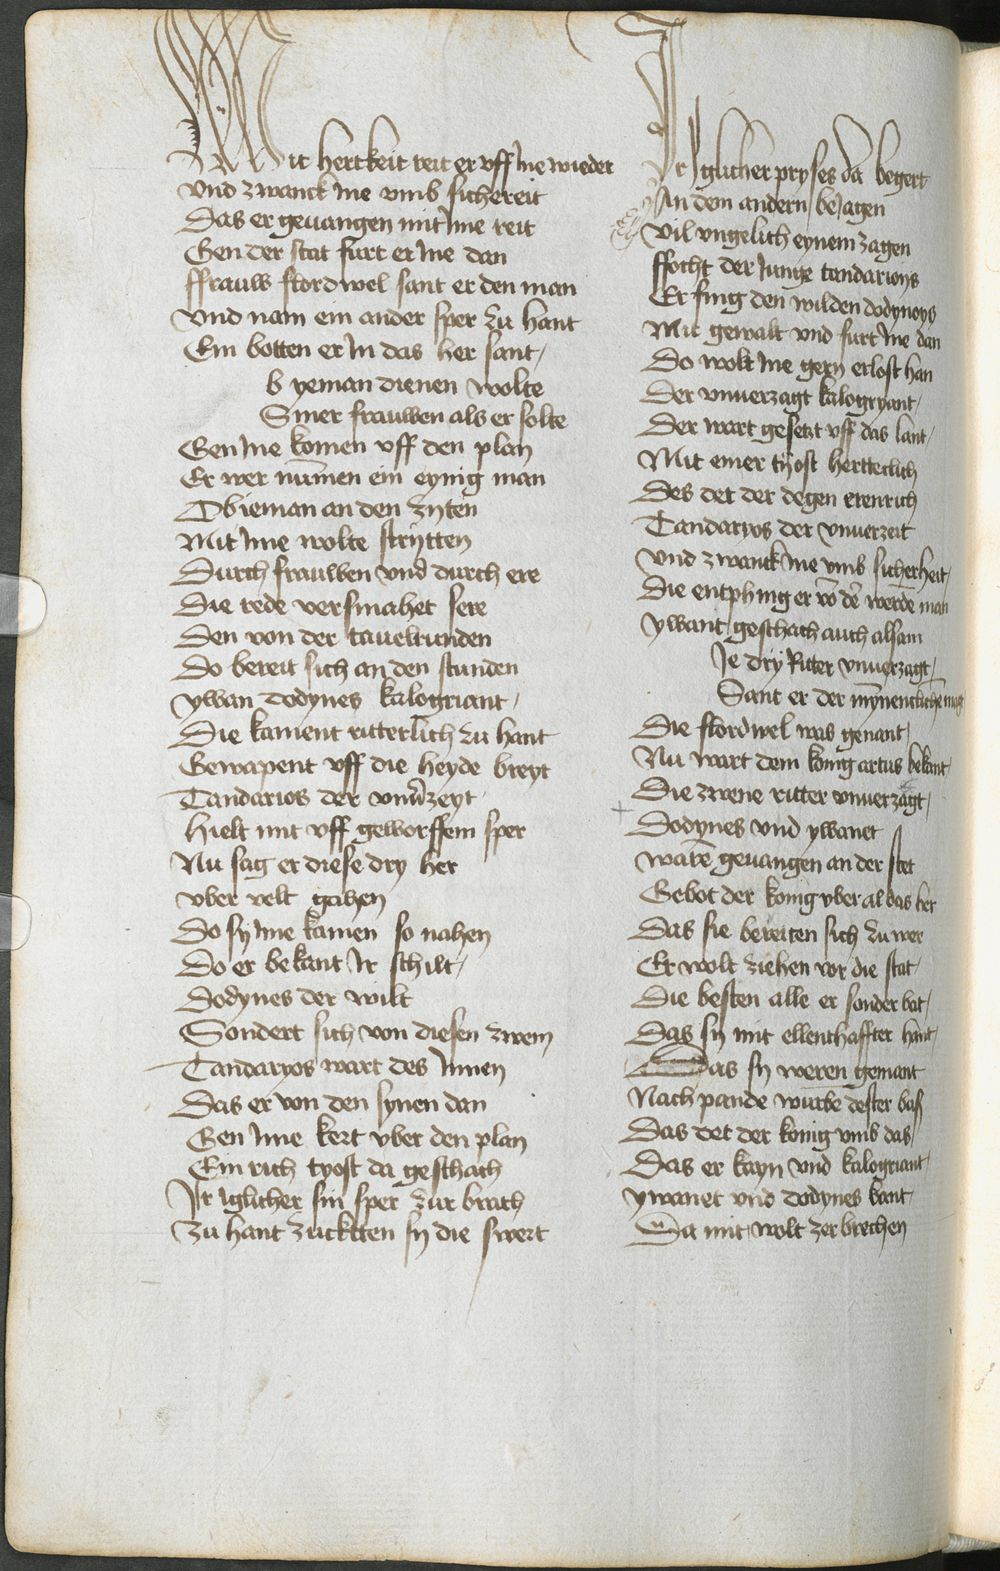 Mit hertkeit reit er vff Jne wieder
Vnd zwanck Jne vmb sichereit
Das er geuangen mit Jme reit
Gen der stat furt er Jne dan
ffrauw flordwel sant er den man
Vnd nam ein ander sper zu hant
Ein botten er Jn das her sant /
b yeman dienen wolte
Siner frauwen als er solte
Gen Jme komen vff den plan
Er wer nummen ein eynig man
Ob ieman an den zyten
Mit Jme wolte strytten
Durch frauwen vnd durch ere
Die rede versmahet sere
Den von der tauelrunden
Do bereit sich an den stunden
ywan dodynes kalogriant /
Die kament ritterlich zu hant
Gewapent vff die heyde breyt
Tandarios der vnuerzeyt
Hielt mit vff geworffem sper
Nu sag er diese dry her
vber velt gahen
Do sy Jme kamen so nahen
Do er bekant Jr schilt /
Dodynes der wilt
Sondert sich von diesen zwein
Tandaryos wart des Jnnen
Das er von den synen dan
Gen Jme kert vber den plan
Ein rich tyost da geschach
Jr iglicher sin sper zur brach
Zu hant zuckten sy die swert
Jr Jglicher pryses da begert
An dem andern / beJagen
Vil vngelich eynem zagen
ffocht der Junge tandarions
Er fing den wilden dodyneys
Mit gewalt vnd furt Jne dan
Do wolt Jne gern erlost han
Der vnuerzagt kalogryant /
Der wart gesetzt vff das lant /
Mit einer tyost hertteclich
Des det der degen erenrich
Tandaryos der vnuerzeit
Vnd zwanck Jne vmb sicherheit /
Die entphing er vo de werde man
ywant / geschach auch alsam
Je dry Ritter vnuerzagt /
Sant er der mynnenclichen mag
Die flordwel was genant /
Nu wart dem konig artus bekant /
Die zwene ritter vnuerzagt /
Dodynes vnd ywanet
Ware geuangen an der stet
Gebot der konig vber al das her
Das sie bereiten sich zu wer
Er wolt ziehen vor die stat /
Die besten alle er sonder bat /
Das sy mit ellenthaffter hant /
Das sy weren gemant
Nach pande wurbe dester bas
Das det der konig vmb das /
Das er kayn vnd kalogriant /
ywanet vnd dodynes bant /
Da mit wolt zerbrechen